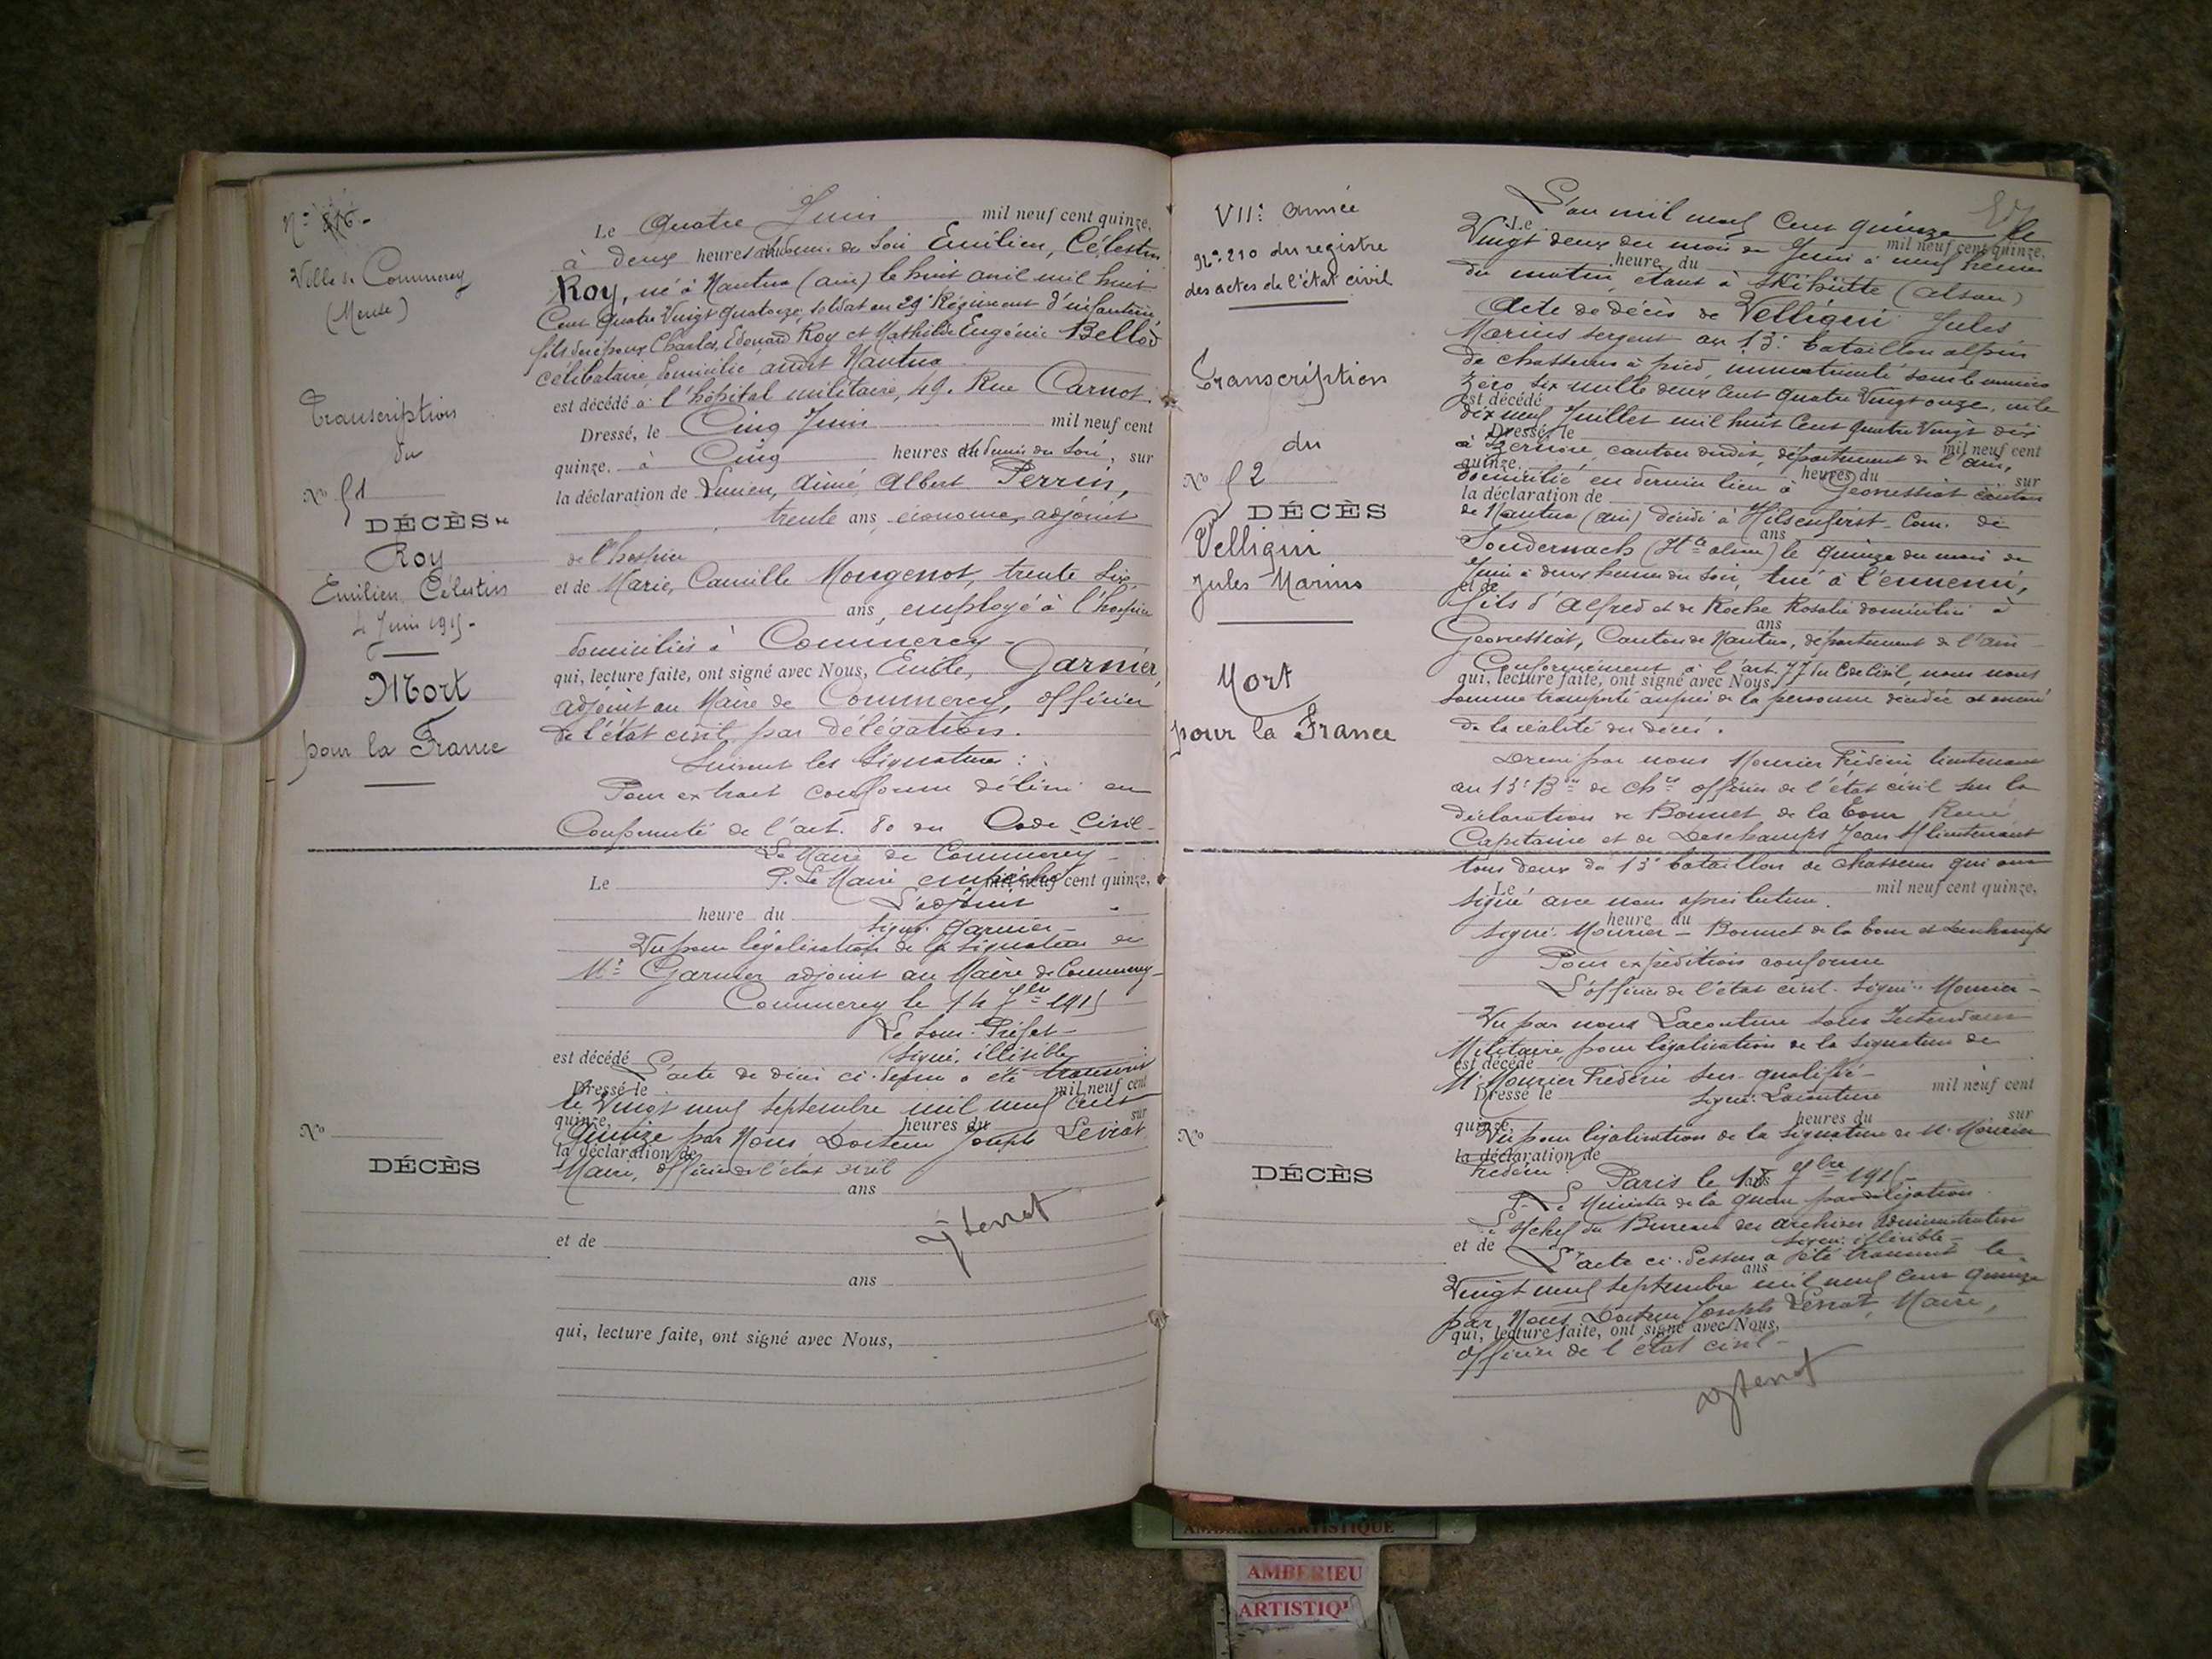 N° 816 -
Ville de Commercy
(Meuse)
Transcription
du
N° 51
DÉCÈS
Roy
Emilien Célestin
4 Juin 1915 -
Mort
pour la France
Le Quatre Juin mil neuf cent quinze,
à deux heures du soir Emilien, Célestin
Roy, né à Nantua (ain) le huit avril mil huit
Cent quatre vingt quatorze, soldat au 29e Régiment d'infanterie,
fils des époux Charles, Edouard Roy et Mathilde Eugénie Bellod
célibataire domicilié audit Nantua
est décédé à l'hôpital militaire, 49. Rue Carnot.
Dressé, le Cinq Juin mil neuf cent
quinze. à Cinq heures du soir, sur
la déclaration de Lucien, Aimé, Albert Perrin,
trente ans, économe, adjoint
de l'hospice
et de Marie, Camille Mougenot, trente six
ans, employé à l'hospice
domiciliés à Commercy -
qui, lecture faite, ont signé avec Nous, Emile, Garnier,
adjoint au Maire de Commercy, officier
de l'état civil, par délégation.
Suivent les signatures :
Pour extrait conforme délivré en
Conformité de l'art. 80 du Code Civil -
Le Maire de Commercy -
Le P. Le Maire empêché mil neuf cent quinze,
L'adjoint
heure du
signé. Garnier -
Vu pour légalisation de la signature de
Mr Garnier adjoint au Maire de Commercy -
Commercy le 14 7bre 1915
Le Sous-Préfet -
signé, illisible
est décédé L'acte de décès ci-dessus a été transcrit
Dressé le mil neuf cent
le vingt neuf septembre mil neuf cent
quinze, heures du sur
quinze par Nous Docteur Joseph Levrat
la déclaration de
Maire, officier de l'état civil
ans
J Levrat
N°
DÉCÈS
et de
ans
qui, lecture faite, ont signé avec Nous,
VIIe année
N° 210 du registre
des actes de l'état civil
Transcription
du
N° 52
DÉCÈS
Velligini
Jules Marius
Mort
pour la France
L'an mil neuf Cent quinze le
Le mil neuf cent quinze,
Vingt deux du mois de Juin à neuf heures
heure du
du matin, étant à Skihutte (alsace)
Acte de décès de Velligini Jules
Marius sergent au 13e bataillon alpin
de chasseurs à pied, immatriculé sous le numéro
zéro six mille deux cent quatre vingt onze, né le
est décédé
dix neuf Juillet mil huit Cent quatre Vingt dix
Dressé, le mil neuf cent
à Izernore, canton dudit, département de l'ain,
quinze. heures du sur
domicilié en dernier lieu à Geovressiat canton
la déclaration de
de Nantua (ain) décédé à Hilsenfirst Com. de
ans
Soudernach (Hte alsace) le quinze du mois de
Juin à deux heures du soir, tué à l'ennemi,
et de
fils d'Alfred et de Roche Rosalie domiciliés à
ans
Geovressiat, Canton de Nantua, département de l'ain
Conformément à l'art. 77 du Code Civil, nous nous
qui, lecture faite, ont signé avec Nous,
sommes transporté auprès de la personne décédée et assuré
de la réalité du décès.
Dressé par nous Mourier Frédéric lieutenant
au 13e Bon de Chrs officier de l'état civil sur la
déclaration de Bonnet de la Tour René
Capitaine et de Deschamps Jean S/lieutenant
tous deux du 13e bataillon de chasseurs qui ont
Le mil neuf cent quinze,
signé avec nous après lecture.
heure du
signé. Mourier - Bonnet de la Tour et Deschamps
Pour expédition conforme
L'officier de l'état civil. signé: Mourier -
Vu par nous Lacouture Sous Intendant
Militaire, pour légalisation de la signature de
est décédé
M. Mourier Frédéric sus-qualifié -
Dressé le mil neuf cent
signé: Lacouture
quinze, heures du sur
Vu pour légalisation de la signature de M. Mourier
la déclaration de
Frédéric: Paris le 18 7bre 1915 -
ans
P. Le Ministre de la guerre par délégation
Le Chef du Bureau des archives administratives
et de signé: illisible -
L'acte ci-dessus a été transcrit le
ans
Vingt neuf septembre mil neuf cent quinze
par Nous Docteur Joseph Levrat, Maire,
qui, lecture faite, ont signé avec Nous,
officier de l'état civil -
J Levrat
N°
DÉCÈS
AMBERIEU ARTISTIQUE
AMBERIEU
ARTISTIQ